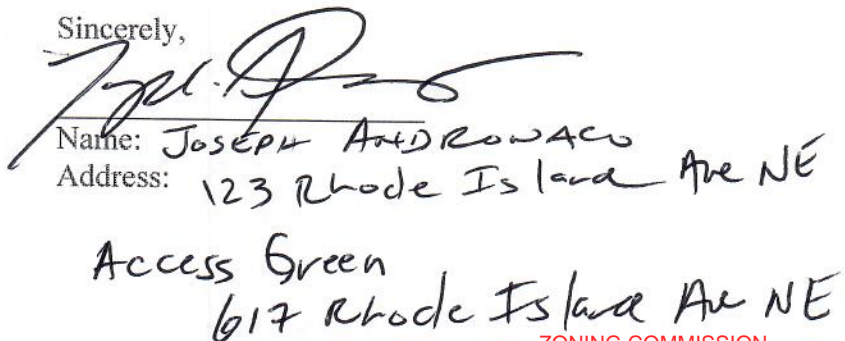 Sincerely,
Name: JOSEPH ANDRONACO
Address: 123 Rhode Island Ave NE
Access Green
617 Rhode Island Ave NE
ZONING COMMISSION